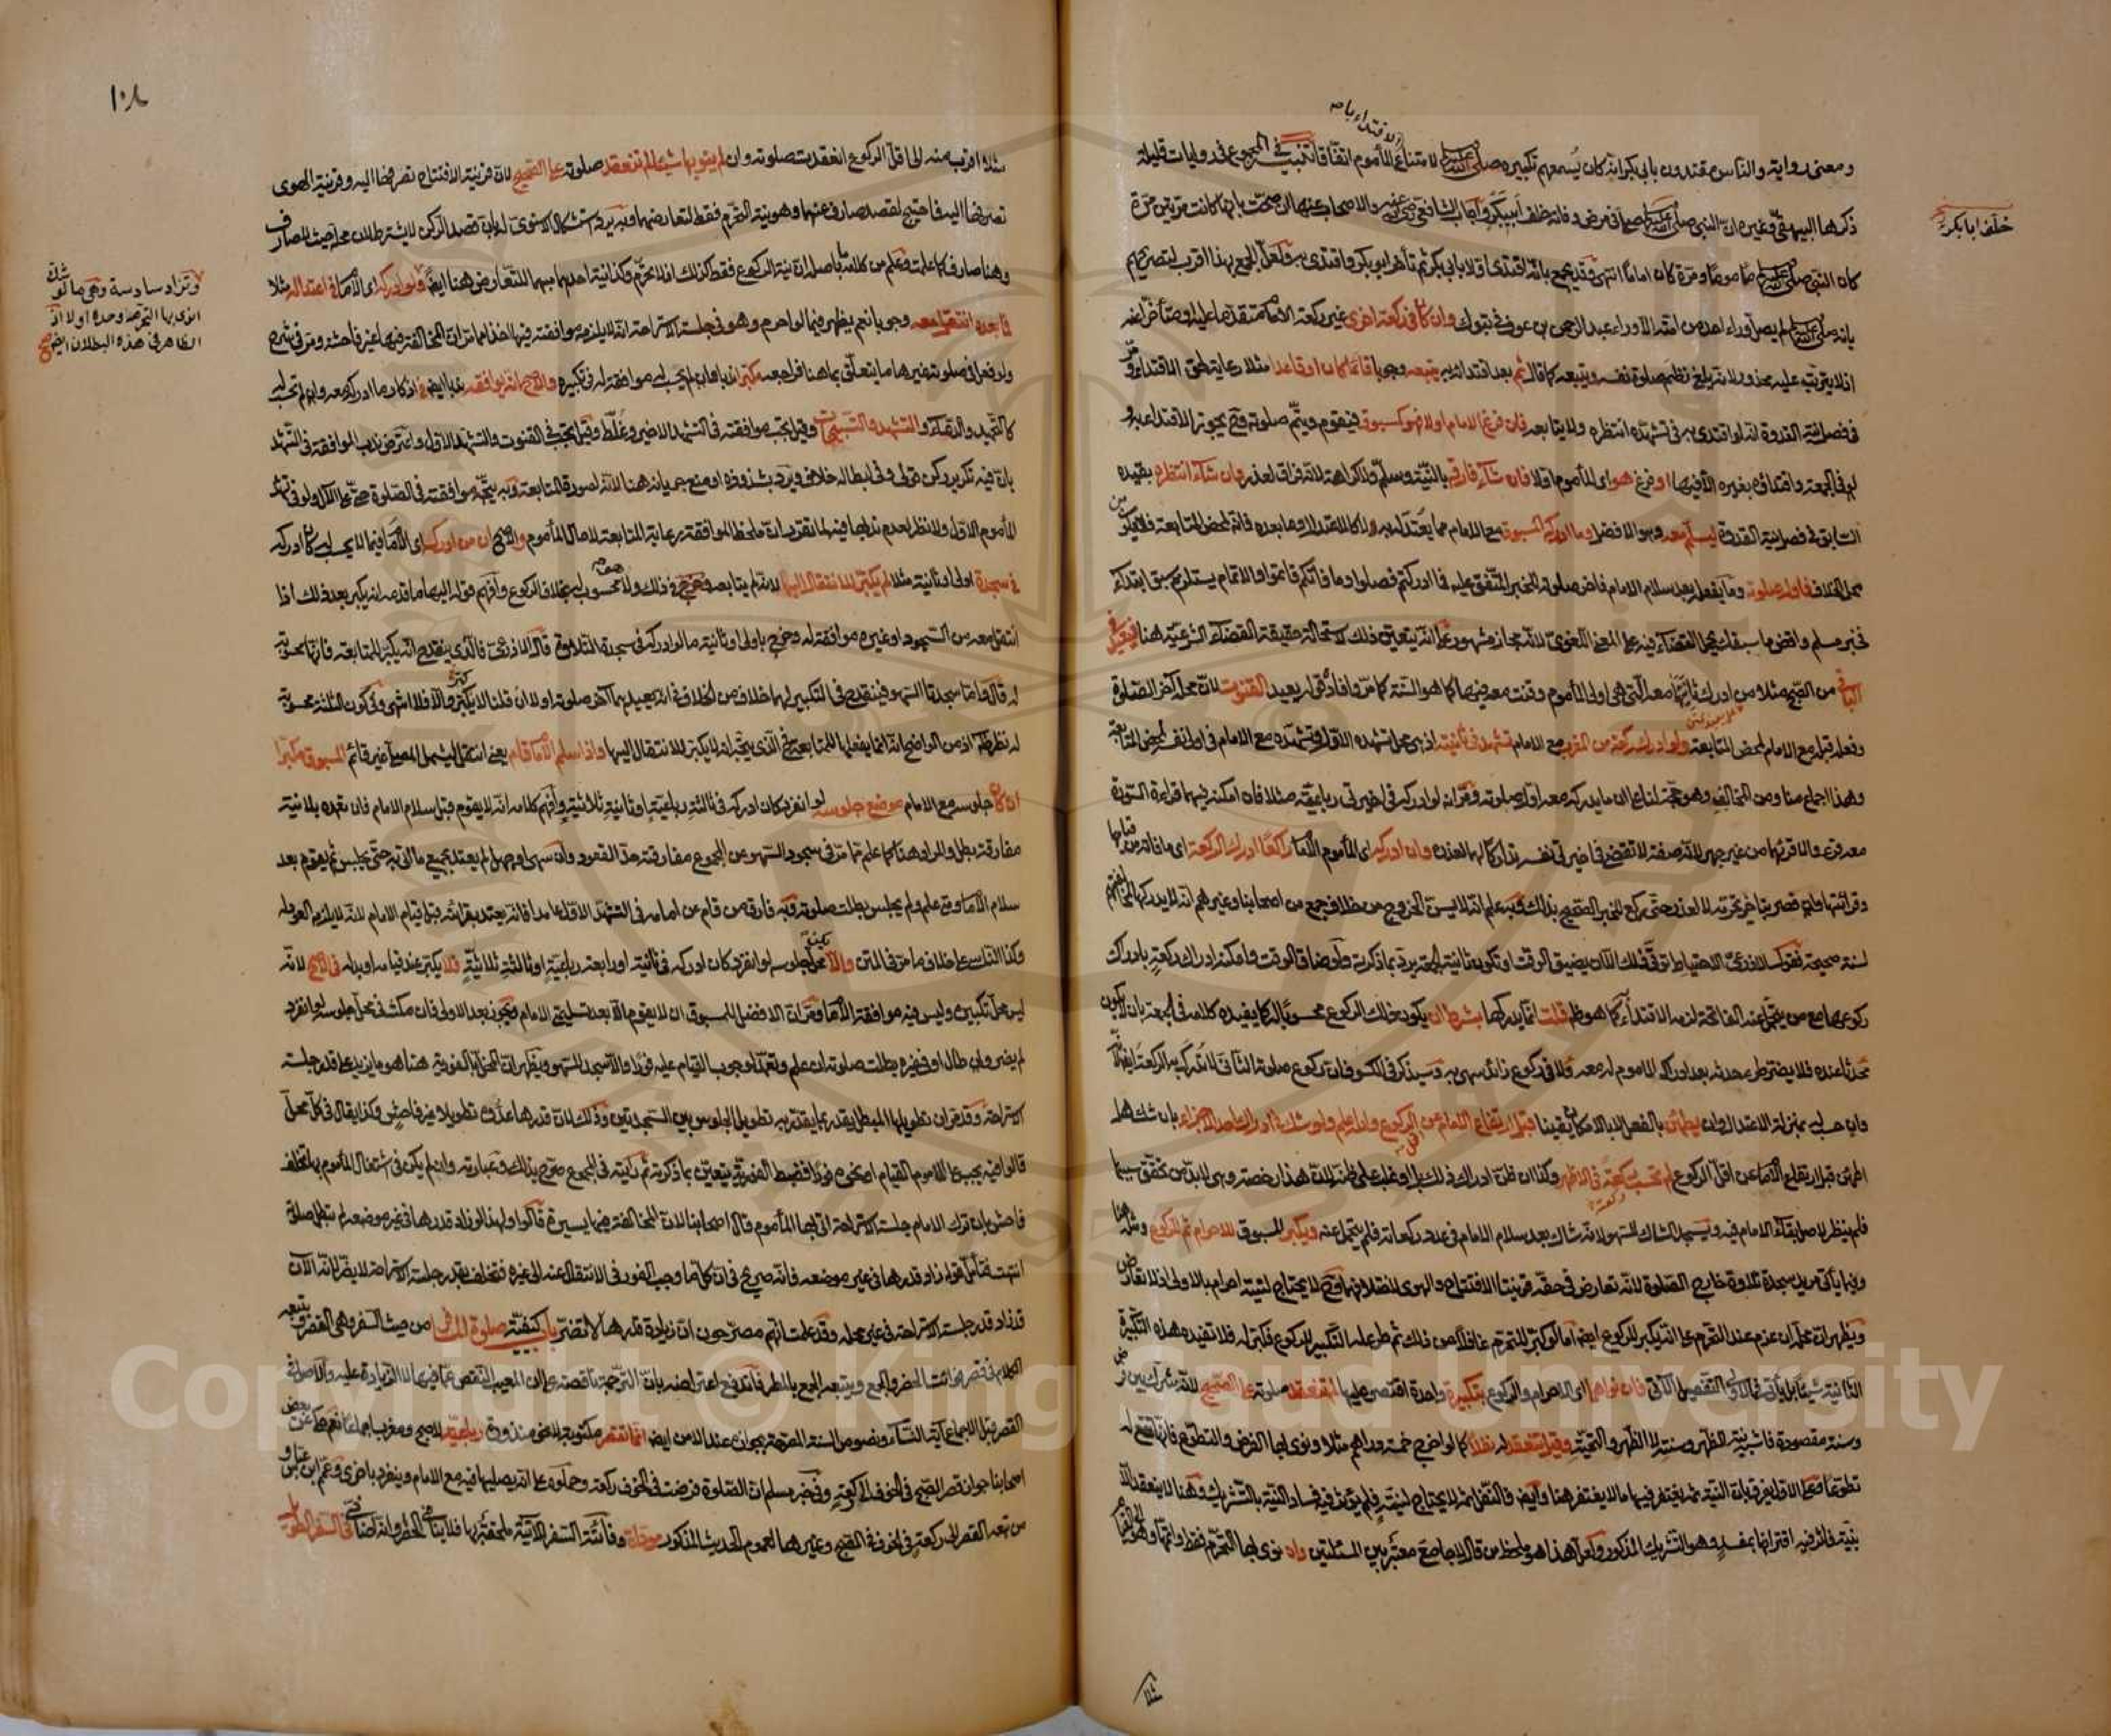 ومعنى رواية والناس مقتدون بابي بكر انه كان يسمعهم تكبيره صلى الله عليه وسلم لامتناع الاقتداء بالمأموم اتفاقا تنبيه في المجموع عن روايات قليلة
ذكرها البيهقي وغيره ان النبي صلى الله عليه وسلم صلى في مرض وفاته خلف ابي بكر واجاب الشافعي رضي الله عنه والاصحاب عنها ان صحت بانها كانت مرتين مرة
كان النبي صلى الله عليه وسلم مأموما ومرة كان اماما انتهى وقد يجمع بانه اقتدى اولا بابي بكر ثم تأخر ابو بكر واقتدى به ولعل الجمع بهذا اقرب لتصريحهم
بانه صلى الله عليه وسلم لم يصل وراء احد من امته الا وراء عبد الرحمن بن عوف في تبوك وان كان في ركعة اخرى غير ركعة الامام متقدما عليه او متأخرا عنه
اذ لا يترتب عليه محذور لانه يلغي نظم صلوة نفسه ويتبعه كما قال ثم بعد اقتدائه به يتبعه وجوبا قائما كان او قاعدا مثلا رعاية لحق الاقتداء ومر
في فصل نية القدوة انه لو اقتدى به في تشهده انتظره ولا يتابعه فان فرغ الامام اولا فهو كمسبوق فيقوم ويتم صلوته وحينئذ يجوز الاقتداء به و
له في الجمعة واقتداؤه بغيره الا فيها او فرغ هو اي المأموم اولا فان شاء فارقه بالنية وسلم ولا كراهة لانه فراق لعذر وان شاء انتظره بقيده
السابق في فصل نية القدوة ليسلم معه وهو الافضل وما ادركه المسبوق مع الامام مما يعتد له به لا كالاعتدال وما بعده فانه لمحض المتابعة فلا يكون من
محل الخلاف فاول صلوته وما يفعله بعد سلام الامام فاخر صلوته للخبر المتفق عليه فما ادركتم فصلوا وما فاتكم فاتموا والاتمام يستلزم سبق ابتداء
فخبر مسلم واقض ما سبقك يحمل القضاء فيه على المعنى اللغوي لانه مجاز مشهور على انه يتعين ذلك لاستحالة حقيقة القضاء الشرعية هنا فيعيد في
الباقي من الصبح مثلا من ادرك ثانيتها معه التي هي اولى المأموم وقنت معه فيها كما هو السنة كما مر وافاد قوله يعيد القنوت لان محله آخر الصلوة
وفعله قبل مع الامام لمحض المتابعة ولو ادرك ركعة من المغرب مع الامام تشهد في ثانيته اذ هي محل تشهده الاول وتشهده مع الامام في اولى نفسه لمحض المتابعة
وهذا اجماع منا ومن المخالف وهو حجة لنا على ان ما يدركه معه اول صلوته ومر انه لو ادركه في اخيرتي رباعية مثلا فان امكنه فيهما قراءة السورة
معه قرء والا قرأها من غير جهر لانه صفة لا تقضى في اخيرتي نفسه تداركا لها لعذره وان ادركه اي المأموم الامام راكعا ادرك الركعة اي ما فاته من قيامها
وقرائتها ولو قصر بتأخير تحرمه لا لعذر حتى ركع للخبر الصحيح بذلك وبه علم انه لا يسن الخروج من خلاف جمع من اصحابنا وغيرهم انه لا يدركها لمخالفتهم
لسنة صحيحة فقول الاذرعي الاحتياط توقي ذلك الا ان يضيق الوقت او تكون ثانية الجمعة يرد بما ذكرته ولو ضاق الوقت وامكنه ادراك ركعة بادراك
ركوعها مع من يتحمل عنه الفاتحة لزمه الاقتداء كما هو ظاهر قلت انما يدركها بشرط ان يكون ذلك الركوع محسوبا له كما يفيده كلامه في الجمعة بان لا يكون
محدثا عنده فلا يضر طرو حدثه بعد ادراك المأموم له معه ولا في ركوع زائد سهى به وسيذكر في الكسوف ان ركوع صلوة الثاني لا تدرك به الركعة ايضا
وان حسب له بمنزلة الاعتدال وان يطمئن بالفعل لا بالامكان يقينا قبل ارتفاع الامام عن اقل الركوع والله اعلم ولو شك في ادراك حد الاجزاء بان شك هل
اطمئن قبل ارتفاع الامام عن اقل الركوع لم تحسب ركعته في الاظهر وكذا ان ظن ادراك ذلك بل او غلب على ظنه لان هذا رخصة وهي لابد من تحقق سببها
فلم ينظر لاصل بقاء الامام فيه ويسجد الشاك للسهو لانه شاك بعد سلام الامام في عدد ركعاته فلم يتحمل عنه ويكبر المسبوق للاحرام ثم للركوع ومثله هنا
وفيما يأتي مريد سجدة تلاوة خارج الصلوة لانه تعارض في حقه قرينتا الافتتاح والهوي لاختلافهما وحينئذ لا يحتاج لنية احرام بالاولى اذ لا تعارض
ويظهر ان محله ان عزم عند التحرم على انه يكبر للركوع ايضا اما لو كبر للتحرم غافلا عن ذلك ثم طرء له التكبير للركوع فكبر له فلا تفيده هذه التكبيرة
الثانية شيئا بل يأتي في الاولى التفصيل الآتي فان نواهما اي الاحرام والركوع بتكبيرة واحدة اقتصر عليها لم تنعقد صلوته على الصحيح لانه شرك بين فرض
وسنة مقصودة فاشبه نية الظهر وسنته لا الظهر والتحية وقيل تنعقد له نفلا كما لو اخرج خمسة دراهم مثلا ونوى بها الفرض والتطوع فانها تقع له
تطوعا فعلى الاول يفرق بان النية ثم يغتفر فيها ما لا يغتفر هنا وايضا فالنفل ثم لا يحتاج لنية فلم يؤثر فيه فساد النية بالتشريك وهنا لا ينعقد الا
بنية فاثر فيه اقترانها بمفسد وهو التشريك المذكور ولعل هذا هو ملحظ من قال لا جامع معتبر بين المسئلتين وان نوى بها التحرم فقط واتمها وهو الى القيام
خلف ابا بكر
مثلا
١٠٨
مثلا اقرب منه الى اقل الركوع انعقدت صلوته وان لم ينو بها شيئا لم تنعقد صلوته على الصحيح لان قرينة الافتتاح تصرفها اليه وقرينة الهوي
تصرفها اليه فاحتيج لقصد صارف عنهما وهو نية التحرم فقط لتعارضهما وبه يرد استشكال الاسنوي له بان قصد الركن لا يشترط لان محله حيث لا صارف
وهنا صارف كما علمت وعلم من كلامه باصله ان نية الركوع فقط كذلك اذ لا تحرم وكذا نية احدهما مبهما للتعارض هنا ايضا ولو ادركه اي الامام في اعتداله مثلا
فما بعده انتقل معه وجوبا نعم يظهر فيما لو احرم وهو في جلسة الاستراحة انه لا يلزمه موافقته فيها اخذا مما مر ان المخالفة فيها غير فاحشة ومر في شرح
ولو فعل في صلوته غيرها ما يتعلق بما هنا فراجعه مكبرا ندبا وان لم يحسب له موافقة له في تكبيره والاصح انه يوافقه ندبا ايضا في اذكار ما ادركه معه وان لم تحسب له
كالتحميد والدعاء والتشهد والتسبيحات وقيل يجب موافقته في التشهد الاخير وغلط وقيل يجب في القنوت والتشهد الاول واعترض ندب الموافقة في التشهد
بان فيه تكرير ركن قولي وفي ابطاله خلاف ويرد بشذوذه او منع جريانه هنا لانه لصورة المتابعة وبه يتجه موافقته في الصلوة حتى على الآل ولو في تشهد
المأموم الاول ولا نظر لعدم ندبها فيه لما تقرر ان ملحظ الموافقة رعاية المتابعة لا حال المأموم والاصح ان من ادركه اي الامام فيما لا يحسب له كان ادركه
في سجدة اولى او ثانية مثلا لم يكبر للانتقال اليها لانه لم يتابعه في ذلك ولا هو محسوب له بخلاف الركوع وافهم قوله اليها ما قدمه انه يكبر بعد ذلك اذا
انتقل معه من السجود او غيره موافقة له وخرج باولى او ثانية ما لو ادركه في سجدة التلاوة قال الاذرعي فالذي ينقدح انه يكبر للمتابعة فانها محسوبة
له قال واما سجدتا السهو فينقدح في التكبير لهما خلاف من الخلاف في انه يعيدهما آخر صلوته او لا ان قلنا لا كبر والا فلا انتهى وفي كون الثلاثة محسوبة
له نظر ظاهر اذ من الواضح انه انما يفعلها للمتابعة فح الذي يتجه انه لا يكبر للانتقال اليها واذا سلم الامام قام يعني انتقل ليشمل المصلي غير قائم المسبوق مكبرا
ان كان جلوسه مع الامام موضع جلوسه لو انفرد كان ادركه في ثالثة رباعية او ثانية ثلاثية وافهم كلامه انه لا يقوم قبل سلام الامام فان تعمده بلا نية
مفارقة بطلت والمراد هنا كما علم مما مر في سجود السهو عن المجموع مفارقته حد القعود وان سهى او جهل لم يعتد بجميع ما اتى به حتى يجلس ثم يقوم بعد
سلام الامام ومتى علم ولم يجلس بطلت صلوته وبه فارق من قام عن امامه في التشهد الاول عامدا فانه يعتد بقرائته قبل قيام الامام لانه لا يلزمه العود له
وكذا الناسي على خلاف ما مر في المتن والا يكن محل جلوسه لو انفرد كان ادركه في ثانية او رابعة رباعية او ثالثة ثلاثية فلا يكبر عند قيامه او بدله في الاصح لانه
ليس محل تكبيره وليس فيه موافقة الامام ومر ان الافضل للمسبوق ان لا يقوم الا بعد تسليمتي الامام ويجوز بعد الاولى فان مكث في محل جلوسه لو انفرد
لم يضر وان طال او في غيره بطلت صلوته ان علم وتعمد لوجوب القيام عليه فورا والا سجد للسهو ويظهر ان المخل بالفورية هنا هو ما يزيد على قدر جلسة
الاستراحة وقد مر ان تطويلها المبطل يقدر بما يقدر به تطويل الجلوس بين السجدتين وذلك لان قدرها عدوه تطويلا غير فاحش وكذا يقال في كل محل
قالوا فيه يجب على المأموم القيام فورا فضبط الفورية يتعين بما ذكرته ثم رأيته في المجموع صرح بذلك وعبارته وان لم يكن في اشتغال المأموم بها تخلف
فاحش بان ترك الامام جلسة الاستراحة اتى بها المأموم قال اصحابنا لان المخالفة فيها يسيرة قالوا ولهذا لو زاد قدرها في غير موضعه لم تبطل صلوته
انتهت فتأمل قوله زاد قدرها في غير موضعه فانه صريح في ان كل ما وجب الفور في الانتقال عنه الى غيره فتخلف بقدر جلسة الاستراحة لا يضر لانه الآن
قد زاد قدر جلسة الاستراحة في غير محله وقد علمت انهم مصرحون ان زيادة قدرها لا تضر باب كيفية صلوة المسافر من حيث السفر وهي القصر ويتبعه
الكلام في قصر فائتة الحضر والجمع ويتبعه الجمع بالمطر فاندفع اعتراضه بان الترجمة ناقصة على ان المعيب النقص عما فيها لا الزيادة عليه والاصل في
القصر قبل الاجماع آية النساء ونصوص السنة المصرحة بجوازه عند الامن ايضا انما تقصر مكتوبة لا نحو منذورة رباعية لا صبح ومغرب اجماعا نعم حكي عن بعض
اصحابنا جواز قصر الصبح في الخوف الى ركعة وفي خبر مسلم ان الصلوة فرضت في الخوف ركعة وحملوه على انه يصليها فيه مع الامام وينفرد باخرى وعمم ابن عباس و
من تبعه القصر الى ركعة في الخوف في الصبح وغيرها لعموم الحديث المذكور مؤداة وفائتة السفر الآتية ملحقة بها فلا ينافي الحصر او انه اضافي في السفر الطويل
وتزاد سادسة وهي ما لو شك
انوى بها التحرم وحده اولا اذ
الظاهر في هذه البطلان ايضا صح